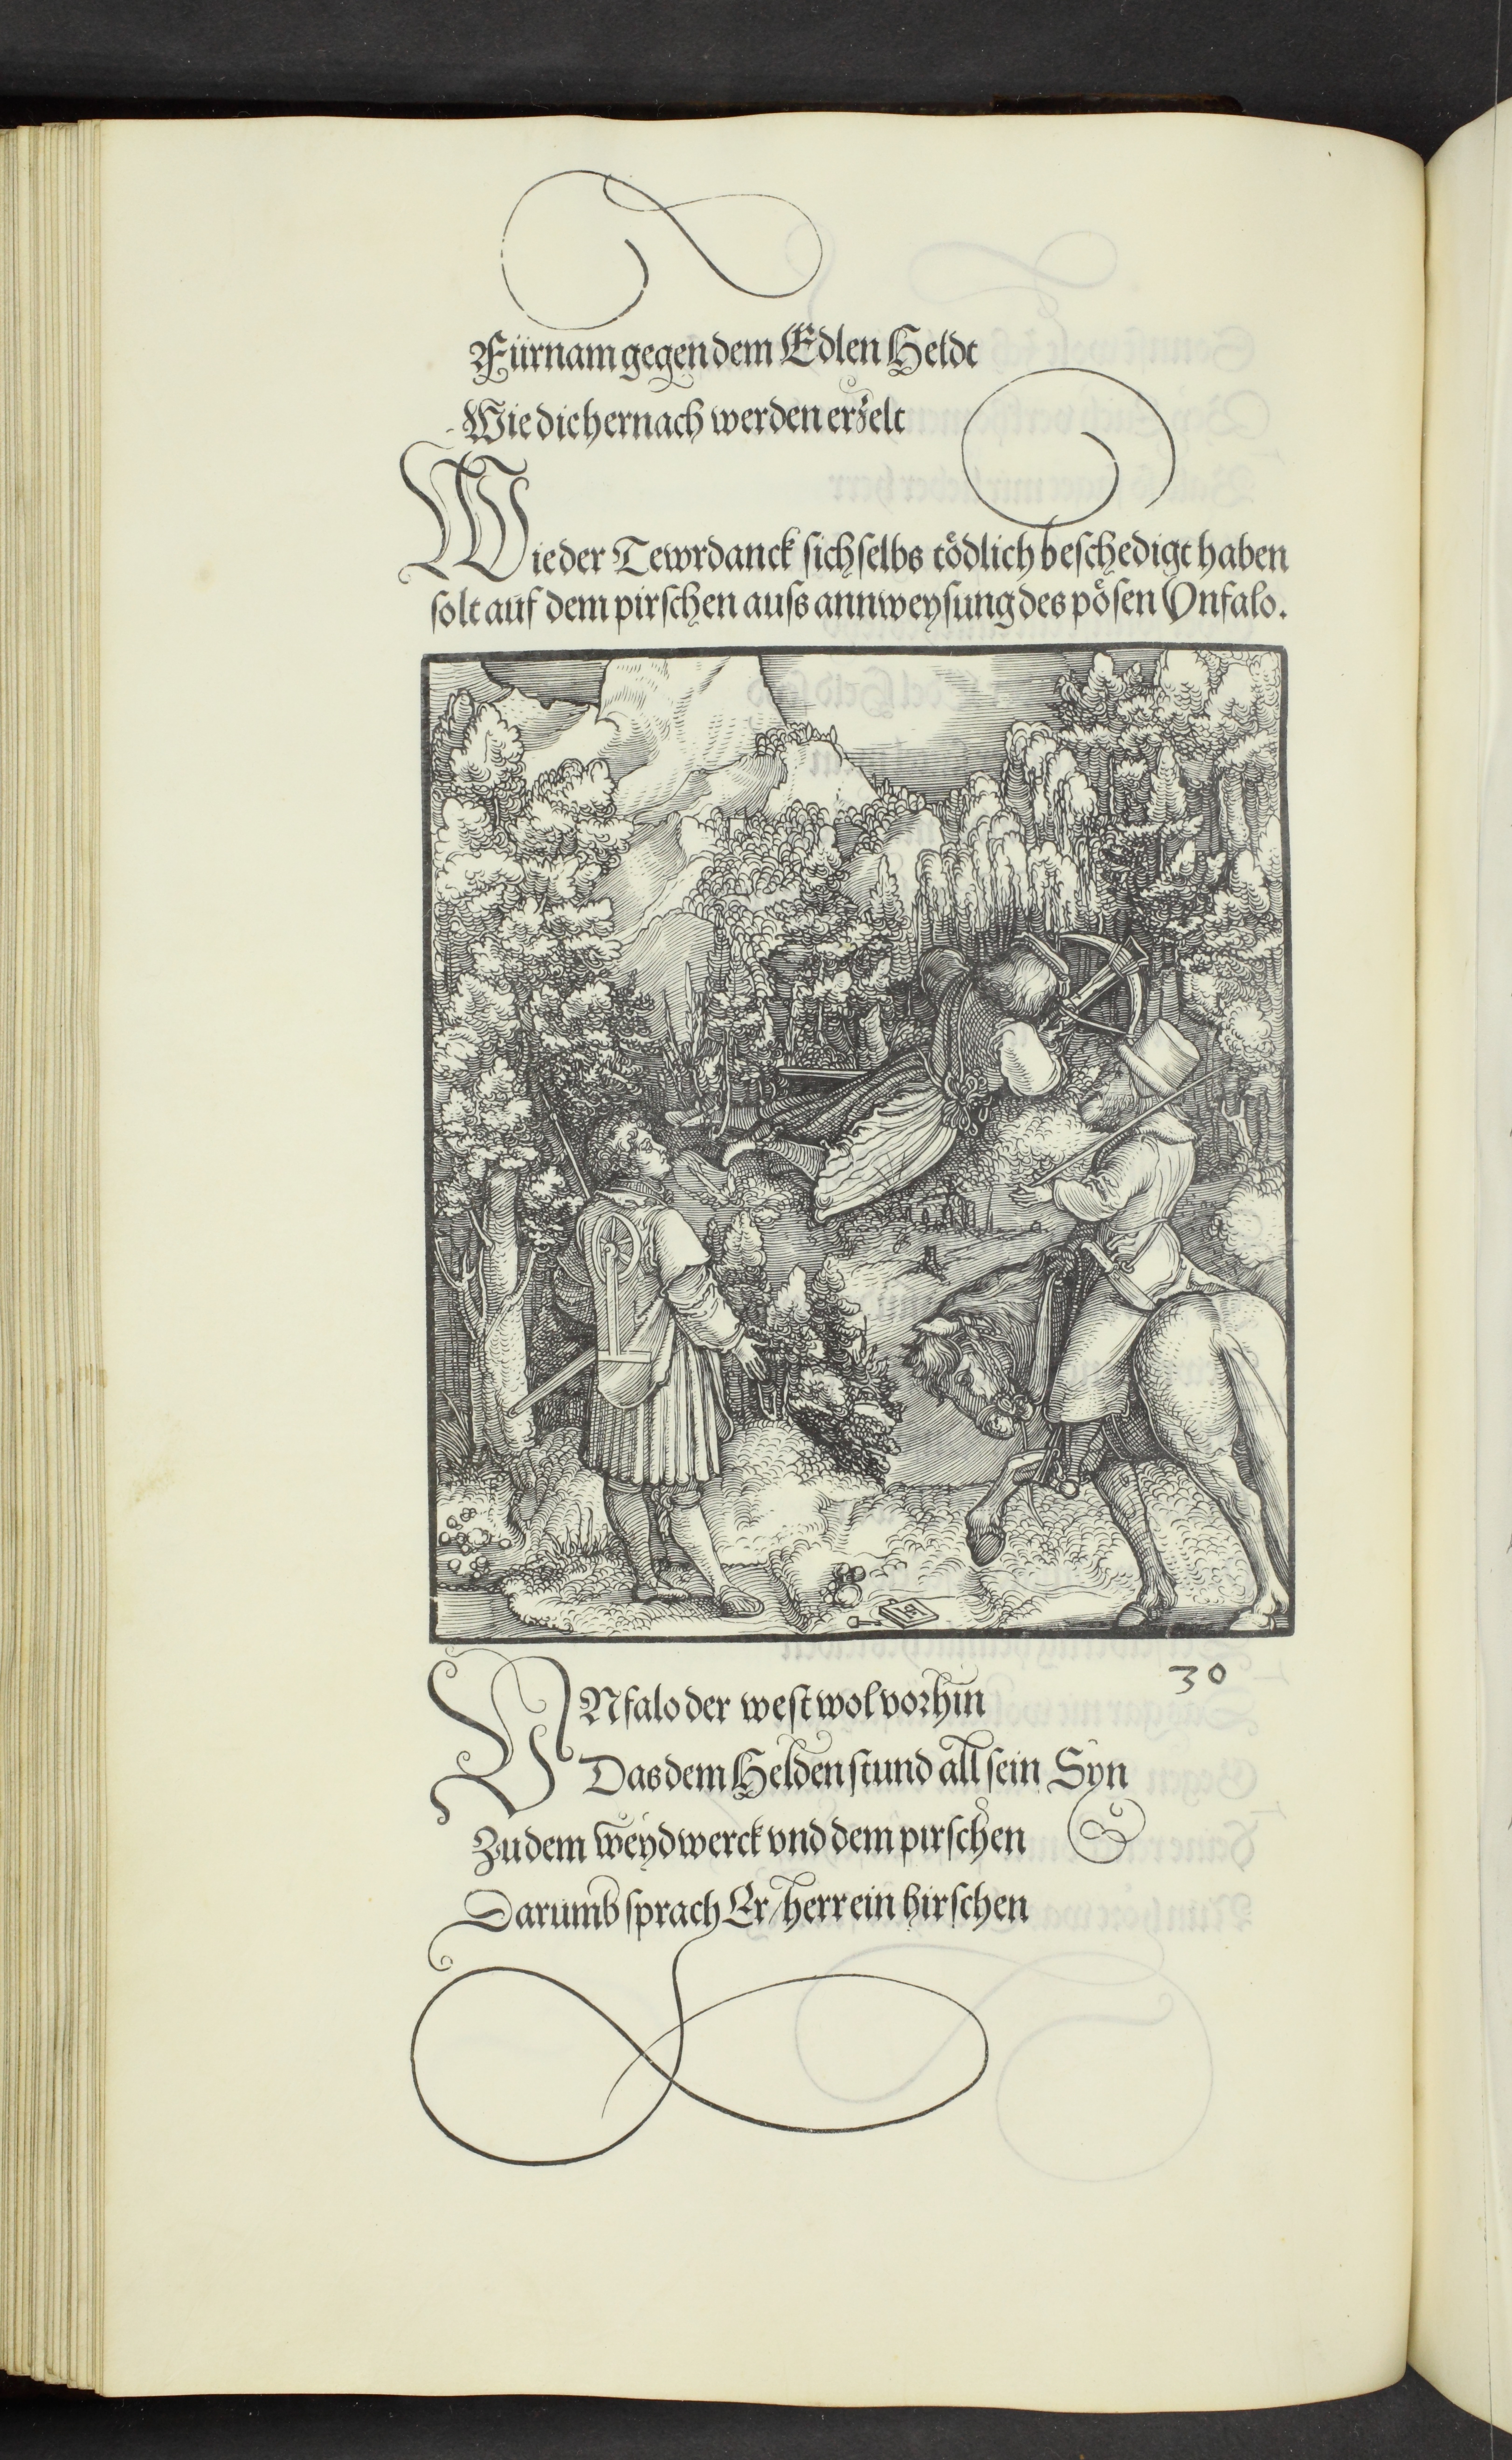 Fürnam gegen dem Edlen Heldt
Wie die hernach werden erzelt
Wie der Tewrdanck sich selbs tödlich beschedigt haben
solt auf dem pirschen auss annweysung des pösen Vnfalo.
30
VNfalo der west wol vorhin
Das dem Helden stund all sein Syn
Zu dem weydwerck vnd dem pirschen
Darumb sprach Er/ herr ein hirschen